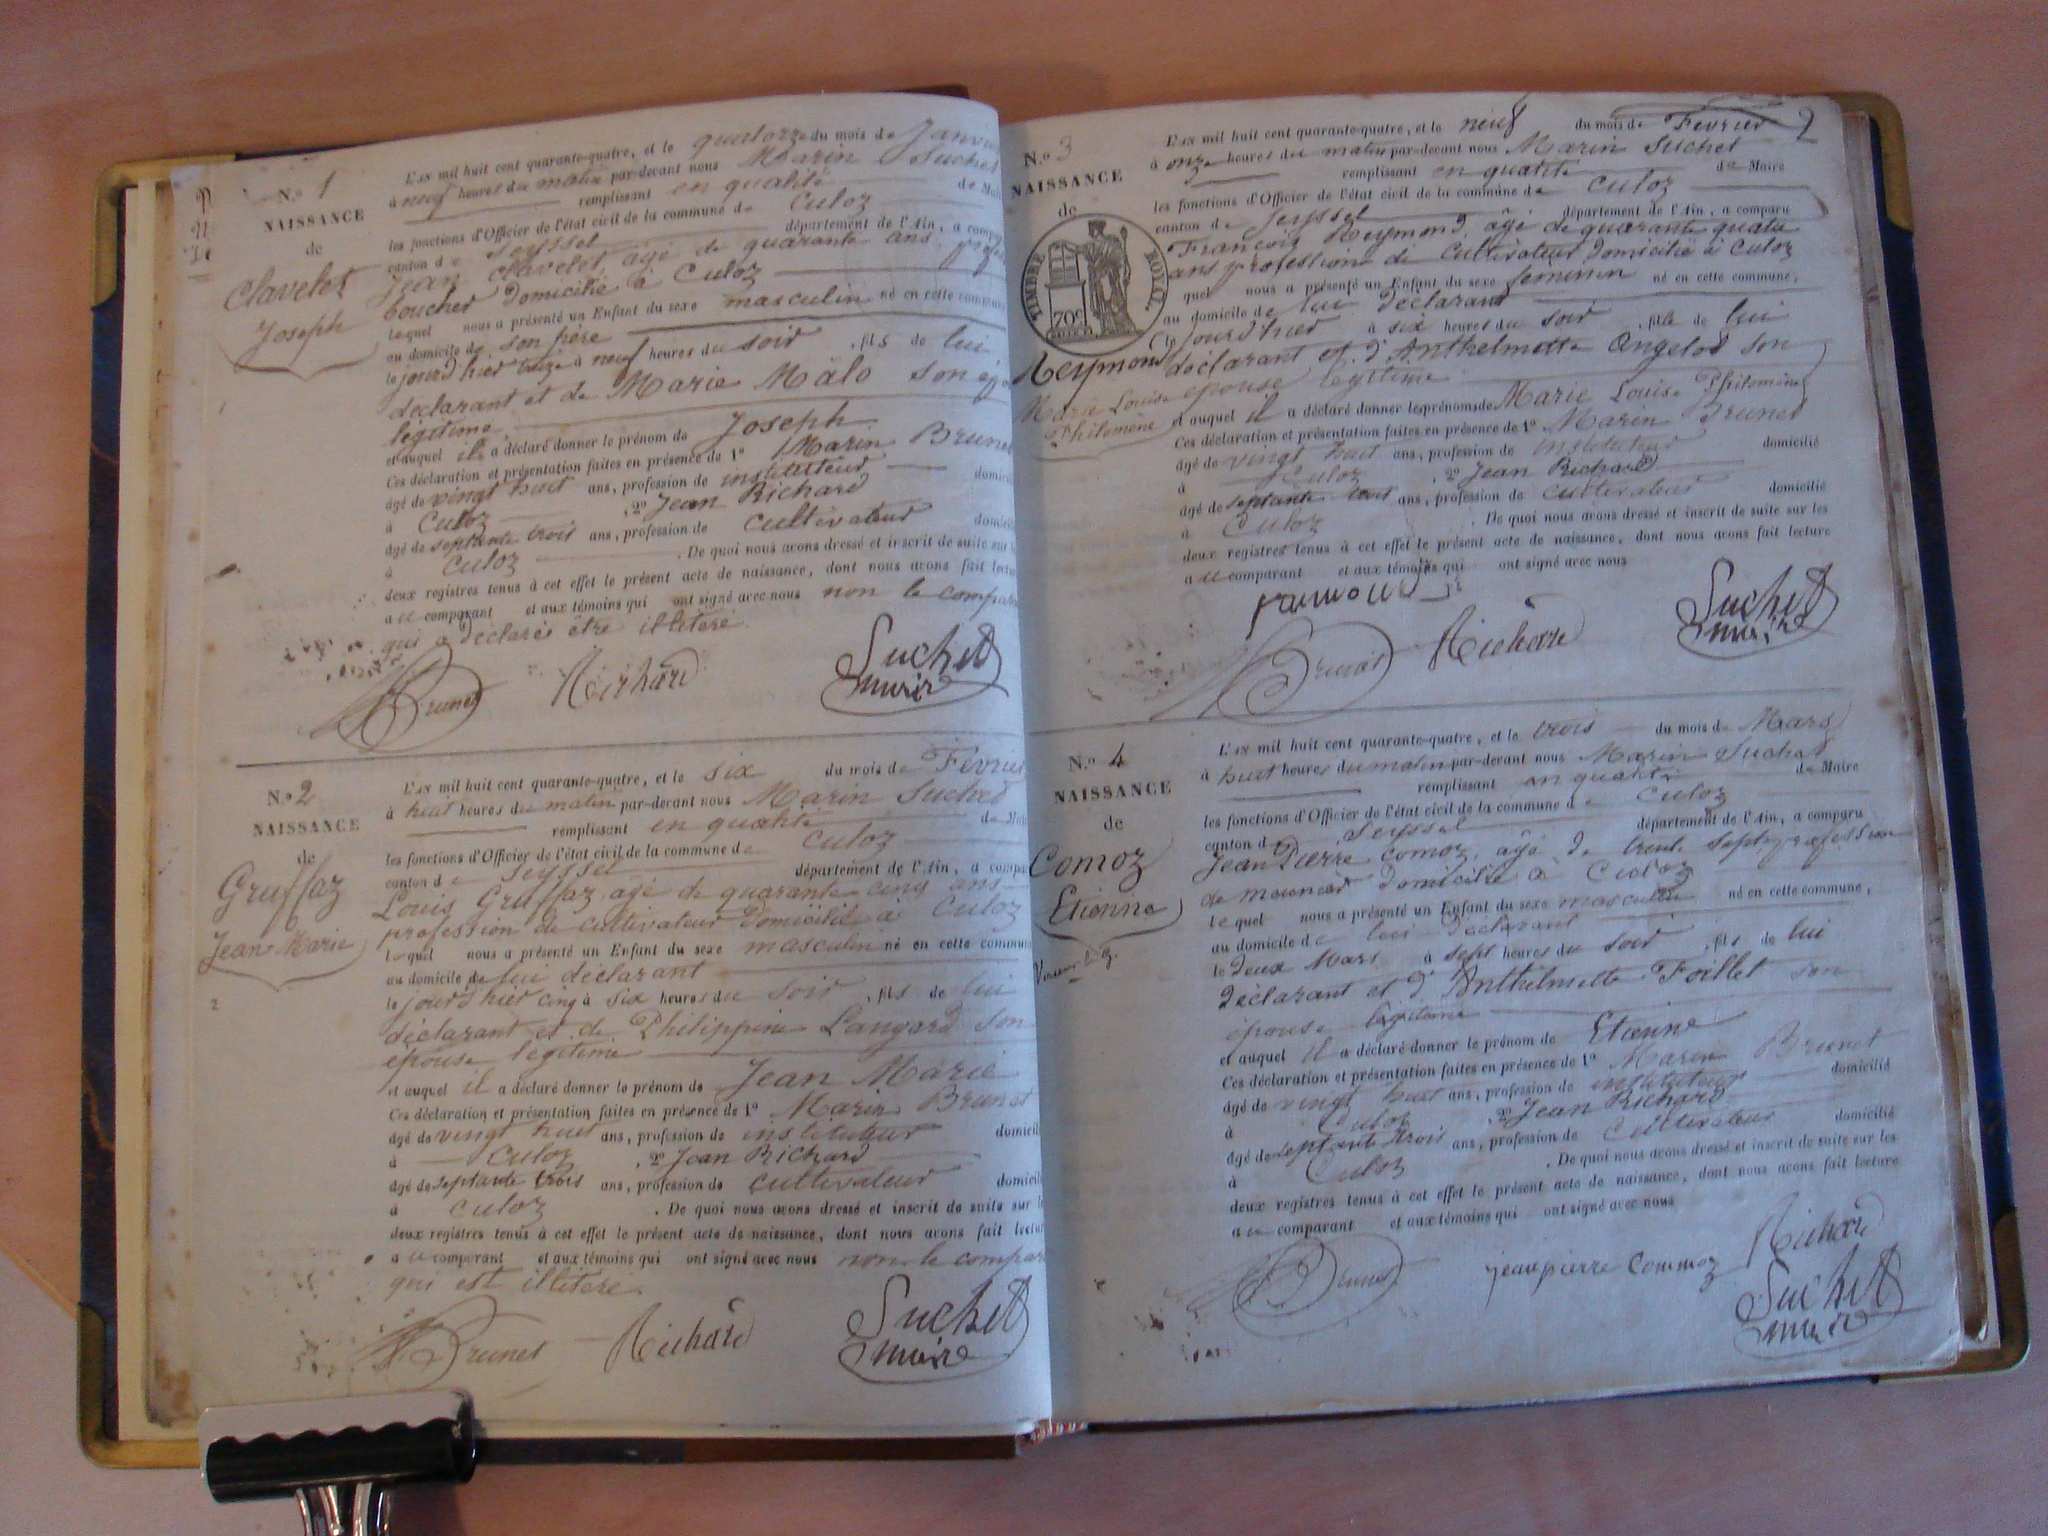 N.º 1
NAISSANCE
de
Clavelet
Joseph
L'AN mil huit cent quarante-quatre, et le quatorze du mois de Janvi
à neuf heures du matin par-devant nous Marin Suchet
remplissant en qualité de Mai
les fonctions d'Officier de l'état civil de la commune de Culoz
canton de Seyssel département de l'Ain, a compa
Jean Clavelet, agé de quarante ans, profes
boucher domicilié à Culoz
lequel nous a présenté un Enfant du sexe masculin né en cette commune
au domicile de son père
le jourd'hier treize à neuf heures du soir , fils de lui
déclarant et de Marie Mâlo son épo
légitime
et auquel il a déclaré donner le prénom de Joseph
Ces déclaration et présentation faites en présence de 1º Marin Brunet
âgé de vingt huit ans, profession de instituteur domicil
à Culoz , 2º Jean Richard
âgé de septante trois ans, profession de cultivateur domicil
à Culoz . De quoi nous avons dressé et inscrit de suite sur l
deux registres tenus à cet effet le présent acte de naissance, dont nous avons fait lectu
au comparant et aux témoins qui ont signé avec nous non le compar
qui a déclaré être illiteré.
Brunet Richard Suchet
maire
N.º 2
NAISSANCE
de
Gruffaz
Jean Marie
2
L'AN mil huit cent quarante-quatre, et le six du mois de Fevrier
à huit heures du matin par-devant nous Marin Suchet
remplissant en qualité de Mair
les fonctions d'Officier de l'état civil de la commune de Culoz
canton de Seyssel département de l'Ain, a compa
Louis Gruffaz agé de quarante cinq ans
profession de cultivateur domicilié à Culoz
lequel nous a présenté un Enfant du sexe masculin né en cette commun
au domicile de lui déclarant
le jourd'hier cinq à six heures du soir , fils de lui
déclarant et de Philippine Langard son
épouse légitime
et auquel il a déclaré donner le prénom de Jean Marie
Ces déclaration et présentation faites en présence de 1º Marin Brunet
âgé de vingt huit ans, profession de instituteur domicili
à Culoz , 2º Jean Richard
âgé de septante trois ans, profession de cultivateur domicili
à Culoz . De quoi nous avons dressé et inscrit de suite sur l
deux registres tenus à cet effet le présent acte de naissance, dont nous avons fait lectur
au comparant et aux témoins qui ont signé avec nous non le compar
qui est illiteré.
Brunet Richard Suchet
maire
2
N.º 3
NAISSANCE
de
TIMBRE ROYAL
70c
Reymond
Marie Louise
Philomène
L'AN mil huit cent quarante-quatre, et le neuf du mois de Fevrier
à onze heures du matin par-devant nous Marin Suchet
remplissant en qualité de Maire
les fonctions d'Officier de l'état civil de la commune de Culoz
canton de Seyssel département de l'Ain, a comparu
François Reymond, âgé de quarante quatre
ans profession de Cultivateur domicilié à Culoz
quel nous a présenté un Enfant du sexe feminin né en cette commune,
au domicile de lui déclarant
le jourd'hier à six heures du soir , fille de lui
déclarant et d'Anthelmette Angelot son
épouse légitime
et auquel il a déclaré donner les prénoms de Marie Louise Philomène
Ces déclaration et présentation faites en présence de 1º Marin Brunet
âgé de vingt huit ans, profession de instituteur domicilié
à Culoz , 2º Jean Richard
âgé de septante trois ans, profession de cultivateur domicilié
à Culoz . De quoi nous avons dressé et inscrit de suite sur les
deux registres tenus à cet effet le présent acte de naissance, dont nous avons fait lecture
au comparant et aux témoins qui ont signé avec nous
Brunet Richard Suchet
maire
N.º 4
NAISSANCE
de
Comoz
Etienne
L'AN mil huit cent quarante-quatre, et le trois du mois de Mars
à huit heures du matin par-devant nous Marin Suchet
remplissant en qualité de Maire
les fonctions d'Officier de l'état civil de la commune de Culoz
canton de Seyssel département de l'Ain, a comparu
Jean Pierre Comoz, âgé de trente sept profession
de domicilié à Culoz
lequel nous a présenté un Enfant du sexe masculin né en cette commune,
au domicile de lui déclarant
le deux Mars à sept heures du soir , fils de lui
déclarant et d'Anthelmette Foillet son
épouse légitime
et auquel il a déclaré donner le prénom de Etienne
Ces déclaration et présentation faites en présence de 1º Marin Brunet
âgé de vingt huit ans, profession de instituteur domicilié
à Culoz , 2º Jean Richard
âgé de septante trois ans, profession de Cultivateur domicilié
à Culoz . De quoi nous avons dressé et inscrit de suite sur les
deux registres tenus à cet effet le présent acte de naissance, dont nous avons fait lecture
au comparant et aux témoins qui ont signé avec nous
Brunet jeanpierre Commoz Richard
Suchet
maire